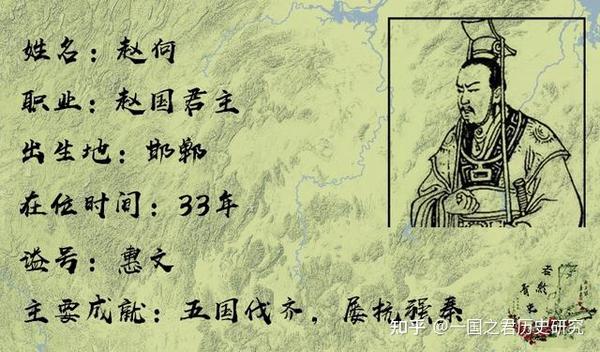 姓名：赵何
职业：赵国君主
出生地：邯郸
在位时间：33年
谥号：惠文
主要成就：五国伐齐，屡抗强秦
知乎 @一国之君历史研究